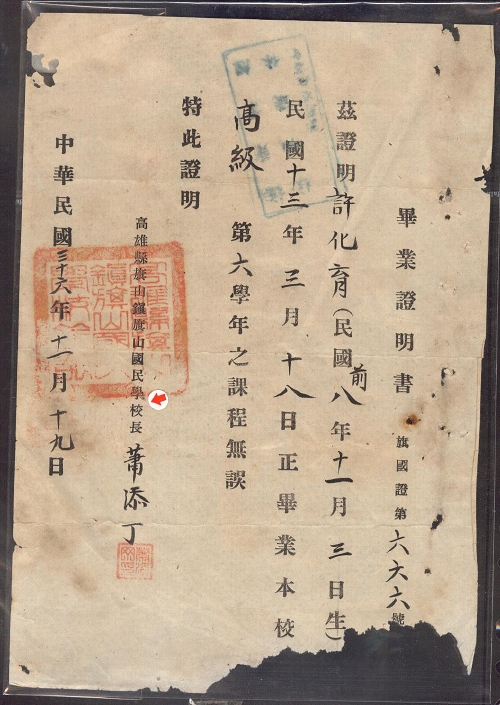 畢業證明書
旗國證第六六六號
茲證明許化育(民國前八年十一月三日生)
民國十三年三月十八日正畢業本校
高級 第六學年之課程無誤
特此證明
高雄縣旗山鎮旗山國民學校長 蕭添丁
中華民國三十六年十一月十九日